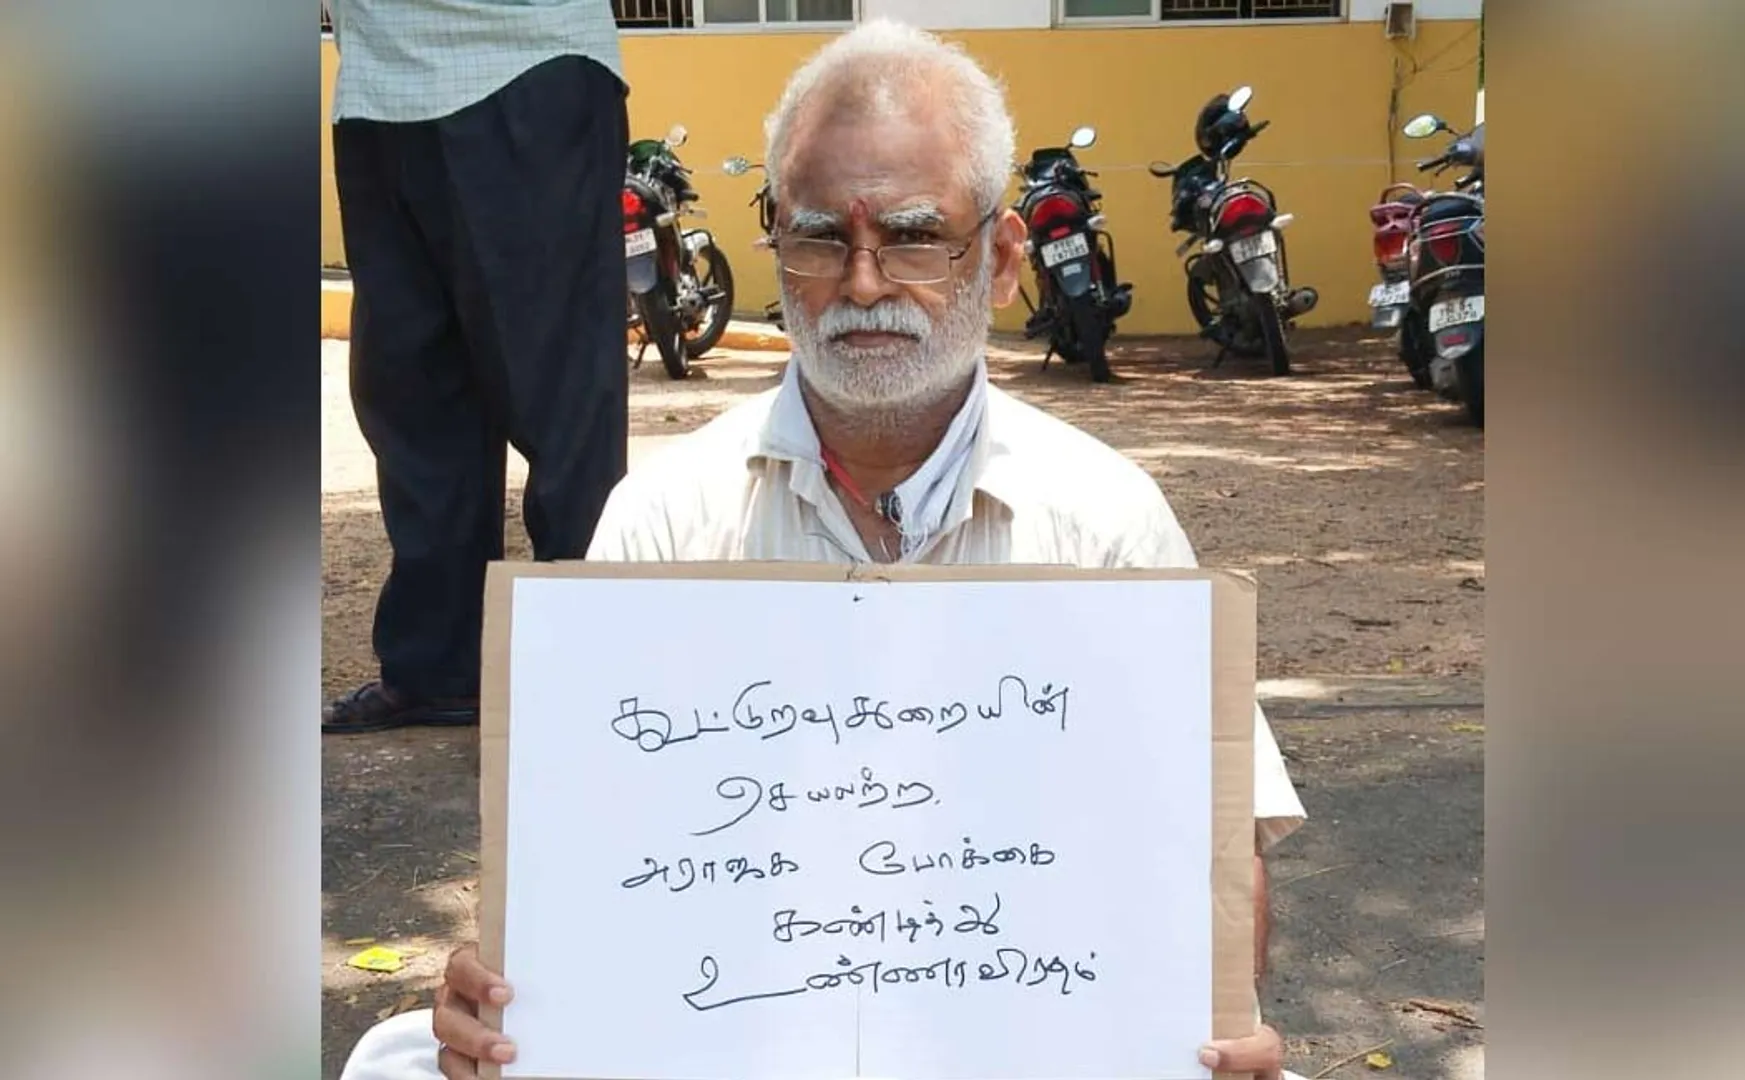 கூட்டுறவு துறையின்
செயலற்ற
அராஜக போக்கை
கண்டித்து
உண்ணாவிரதம்